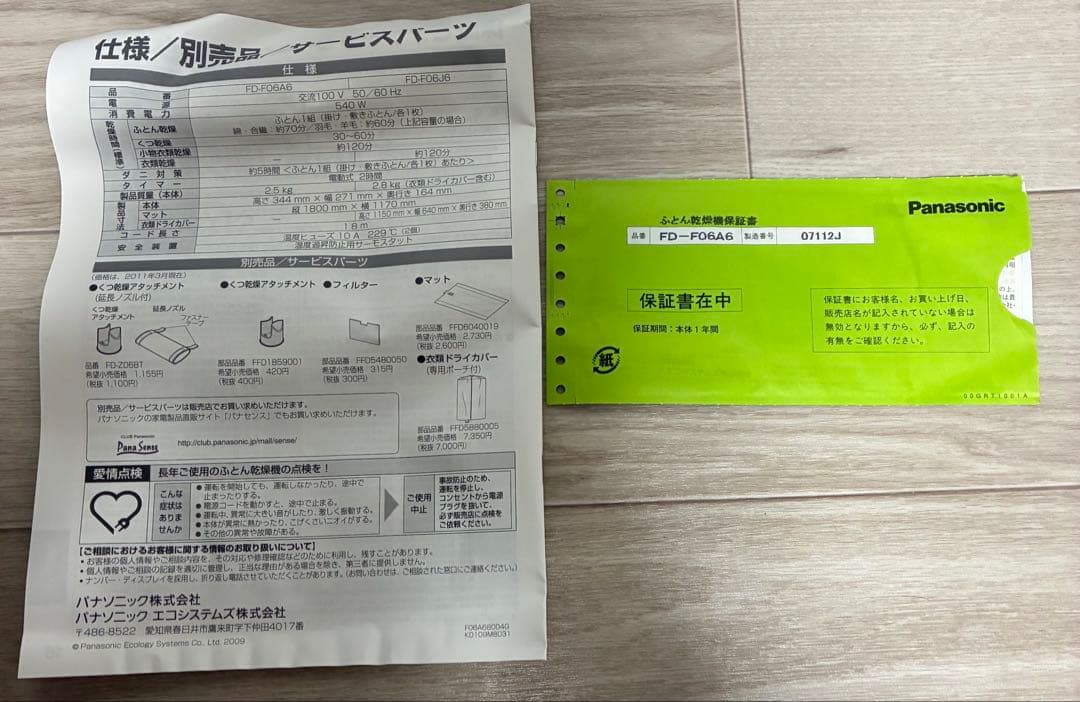 仕様／別売品／サービスパーツ
仕様
品番 FD-F06A6 FD-F06J6
電源 交流100 V 50／60 Hz
消費電力 540 W
乾燥時間（標準）
ふとん乾燥 ふとん1組（掛け・敷きふとん/各1枚）
綿・合繊：約70分／羽毛・羊毛：約60分（上記容量の場合）
くつ乾燥 30～60分
小物衣類乾燥 約120分
衣類乾燥 － 約120分
ダニ対策 約5時間＜ふとん1組（掛け・敷きふとん/各1枚）あたり＞
タイマー 電動式 2時間
製品質量（本体） 2.5 kg 2.8 kg（衣類ドライカバー含む）
製品寸法
本体 高さ 344 mm × 幅 271 mm × 奥行き 164 mm
マット 縦 1800 mm × 横 1170 mm
衣類ドライカバー － 高さ 1150 mm × 幅 640 mm × 奥行き 380 mm
コード長さ 1.8 m
安全装置 温度ヒューズ 10 A 229 ℃（2個）
温度過昇防止用サーモスタット
別売品／サービスパーツ
（価格は、2011年3月現在）
●くつ乾燥アタッチメント
（延長ノズル付）
くつ乾燥
アタッチメント
延長ノズル
ファスナー
テープ
品番 FD-Z06BT
希望小売価格 1,155円
（税抜 1,100円）
●くつ乾燥アタッチメント
部品品番 FFD1859001
希望小売価格 420円
（税抜 400円）
●フィルター
部品品番 FFD5480050
希望小売価格 315円
（税抜 300円）
●マット
部品品番 FFD6040019
希望小売価格 2,730円
（税抜 2,600円）
●衣類ドライカバー
（専用ポーチ付）
部品品番 FFD5880005
希望小売価格 7,350円
（税抜 7,000円）
別売品／サービスパーツは販売店でお買い求めいただけます。
パナソニックの家電製品直販サイト「パナセンス」でもお買い求めいただけます。
CLUB Panasonic
Pana Sense
http://club.panasonic.jp/mall/sense/
愛情点検
長年ご使用のふとん乾燥機の点検を！
こんな
症状は
ありま
せんか
●運転を開始しても、運転しなかったり、途中で
止まったりする。
●電源コードを動かすと、途中で止まる。
●運転中、異常に大きい音がしたり、激しく振動する。
●本体が異常に熱かったり、こげくさいニオイがする。
●その他の異常や故障がある。
ご使用
中止
事故防止のため、
運転を停止し、
コンセントから電源
プラグを抜いて、
必ず販売店に点検を
ご依頼ください。
【ご相談におけるお客様に関する情報のお取り扱いについて】
・お客様の個人情報やご相談内容を、その対応や修理確認などのために利用し、残すことがあります。
・個人情報やご相談の記録を適切に管理し、正当な理由がある場合を除き、第三者に提供しません。
・ナンバー・ディスプレイを採用し、折り返し電話させていただくことがあります。（お問い合わせは、ご相談された窓口にご連絡ください。）
パナソニック株式会社
パナソニック エコシステムズ株式会社
〒486-8522 愛知県春日井市鷹来町字下仲田4017番
© Panasonic Ecology Systems Co., Ltd. 2009
F06A68004G
KD109M8031
Panasonic
ふとん乾燥機保証書
品番 FD－F06A6 製造番号 07112J
保証書在中
保証期間：本体1年間
紙
保証書にお客様名、お買い上げ日、
販売店名が記入されていない場合は
無効となりますから、必ず、記入の
有無をご確認ください。
00GRT1001A